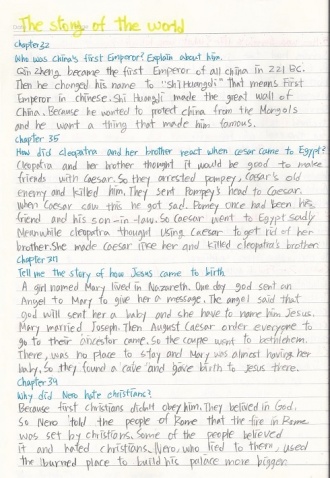 The story of the world
chapter32
Who was China's first Emperor? Explain about him.
Qin zheng became the first Emperor of all china in 221 BC.
Then he changed his name to "Shi Huangdi" that means First
Emperor in chinese. Shi Huangdi made the great wall of
China. Because he wanted to protect china from the Mongols
and he want a thing that made him famous.
chapter 35
How did cleopatra and her brother react when cesar came to Egypt?
Cleopatra and her brother thought it would be good to make
friends with Caesar. So they arrested pompey, Caesar's old
enemy and killed him. They sent Pompey's head to Caesar.
when Caesar saw this he got sad. Pomey once had been his
friend and his son-in-law. So Caesar went to Egypt sadly
Meanwhile cleopatra thought using Caesar to get rid of her
brother. She made Caesar like her and killed cleopatra's brother
Chapter 37
Tell me the story of how Jesus came to birth
A girl named Mary lived in Nazareth. One day god sent an
Angel to Mary to give her a message. The angel said that
god will sent her a baby and she have to name him Jesus.
Mary married Joseph. Then August Caesar order everyone to
go to their ancestor came. So the couple went to bethlehem.
There, was no place to stay and Mary was almost having her
baby. So they found a cave and gave birth to Jesus there.
Chapter 39
Why did Nero hate christians?
Because first christians didn't obey him. They belived in God.
So Nero told the people of Rome that the fire in Rome
was set by christians. Some of the people believed
it and hated christians. Nero, who lied to them, used
the burned place to build his palace more bigger